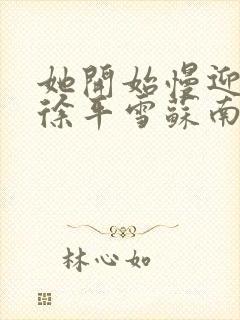 她開始慢迎
徐平雪蘇南
林心如